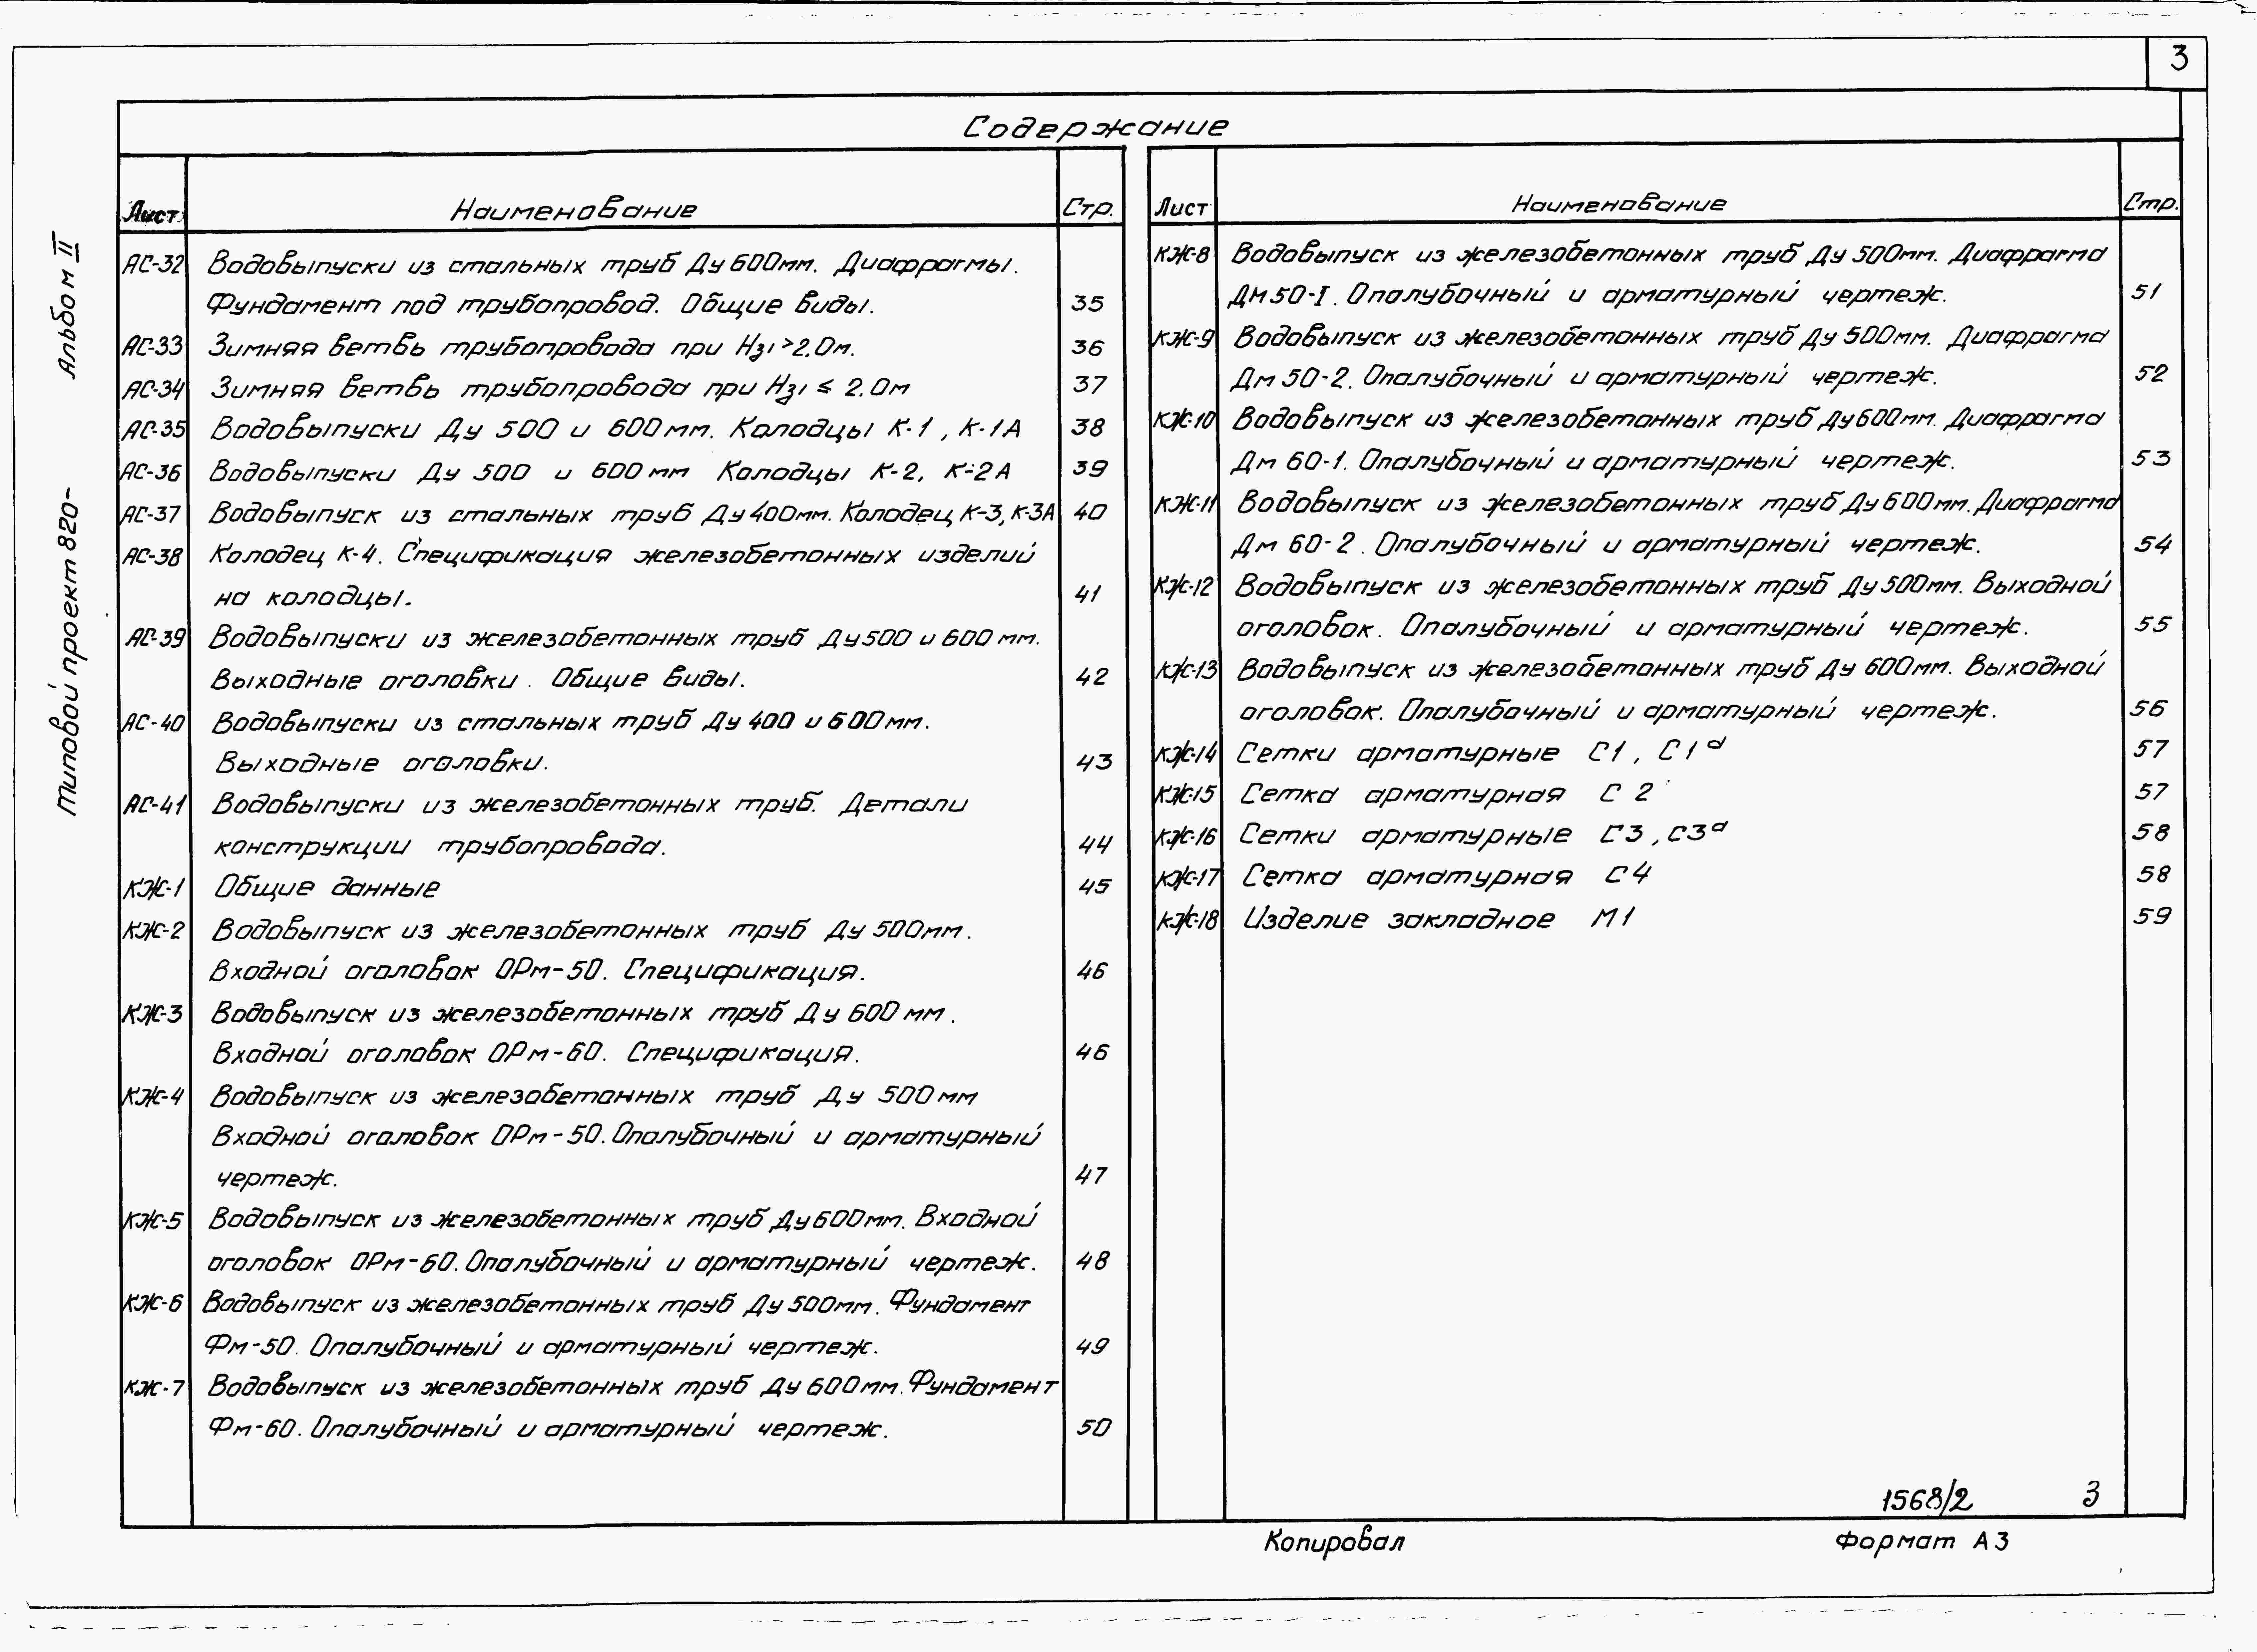 3
Содержание
Альбом II
Типовой проект 820-
Лист Наименование Стр.
АС-32 Водовыпуски из стальных труб Ду 600мм. Диафрагмы.
Фундамент под трубопровод. Общие виды. 35
АС-33 Зимняя ветвь трубопровода при Нз1 > 2.0м. 36
АС-34 Зимняя ветвь трубопровода при Нз1 ≤ 2.0м 37
АС-35 Водовыпуски Ду 500 и 600мм. Колодцы К-1, К-1А 38
АС-36 Водовыпуски Ду 500 и 600мм Колодцы К-2, К-2А 39
АС-37 Водовыпуск из стальных труб Ду 400мм. Колодец К-3, К-3А 40
АС-38 Колодец К-4. Спецификация железобетонных изделий
на колодцы. 41
АС-39 Водовыпуски из железобетонных труб Ду 500 и 600 мм.
Выходные оголовки. Общие виды. 42
АС-40 Водовыпуски из стальных труб Ду 400 и 600мм.
Выходные оголовки. 43
АС-41 Водовыпуски из железобетонных труб. Детали
конструкции трубопровода. 44
КЖ-1 Общие данные 45
КЖ-2 Водовыпуск из железобетонных труб Ду 500мм.
Входной оголовок ОРм-50. Спецификация. 46
КЖ-3 Водовыпуск из железобетонных труб Ду 600 мм.
Входной оголовок ОРм-60. Спецификация. 46
КЖ-4 Водовыпуск из железобетонных труб Ду 500мм
Входной оголовок ОРм-50. Опалубочный и арматурный
чертеж. 47
КЖ-5 Водовыпуск из железобетонных труб Ду 600мм. Входной
оголовок ОРм-60. Опалубочный и арматурный чертеж. 48
КЖ-6 Водовыпуск из железобетонных труб Ду 500мм. Фундамент
Фм-50. Опалубочный и арматурный чертеж. 49
КЖ-7 Водовыпуск из железобетонных труб Ду 600мм. Фундамент
Фм-60. Опалубочный и арматурный чертеж. 50
Лист Наименование Стр.
КЖ-8 Водовыпуск из железобетонных труб Ду 500мм. Диафрагма
Дм 50-I. Опалубочный и арматурный чертеж. 51
КЖ-9 Водовыпуск из железобетонных труб Ду 500мм. Диафрагма
Дм 50-2. Опалубочный и арматурный чертеж. 52
КЖ-10 Водовыпуск из железобетонных труб Ду 600мм. Диафрагма
Дм 60-1. Опалубочный и арматурный чертеж. 53
КЖ-11 Водовыпуск из железобетонных труб Ду 600мм. Диафрагма
Дм 60-2. Опалубочный и арматурный чертеж. 54
КЖ-12 Водовыпуск из железобетонных труб Ду 500мм. Выходной
оголовок. Опалубочный и арматурный чертеж. 55
КЖ-13 Водовыпуск из железобетонных труб Ду 600мм. Выходной
оголовок. Опалубочный и арматурный чертеж. 56
КЖ-14 Сетки арматурные С1, С1ᵃ 57
КЖ-15 Сетка арматурная С 2 57
КЖ-16 Сетки арматурные С3, С3ᵃ 58
КЖ-17 Сетка арматурная С4 58
КЖ-18 Изделие закладное М1 59
1568/2 3
Копировал Формат А3